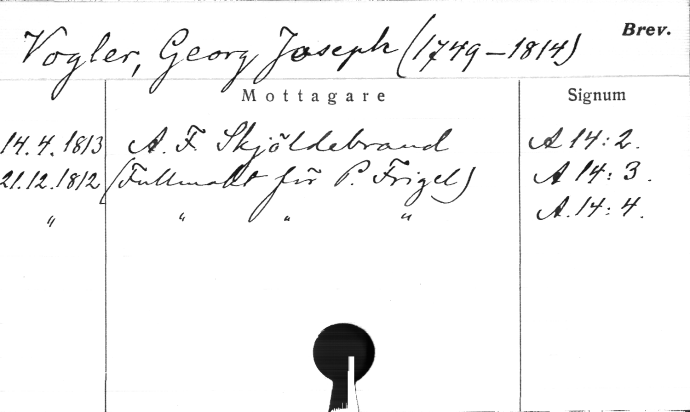 Vogler, Georg Joseph (1749–1814) Brev.
Mottagare Signum
14.4.1813 A. F. Skjöldebrand A 14:2.
21.12.1812 (Fullmakt för P. Frigel) A 14:3.
" " " " A.14:4.